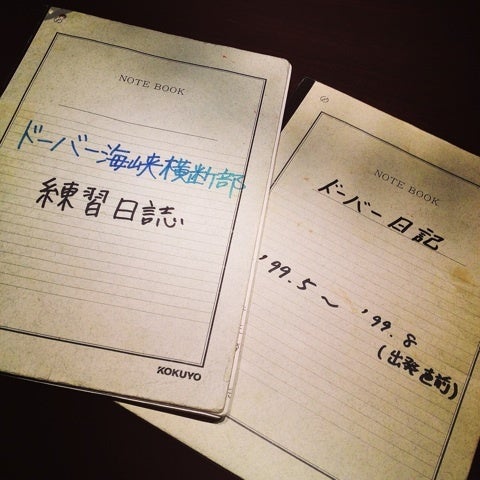 NOTE BOOK
ドーバー海峡横断部
練習日誌
KOKUYO
NOTE BOOK
ドーバー日記
'99.5〜'99.8
(出発直前)